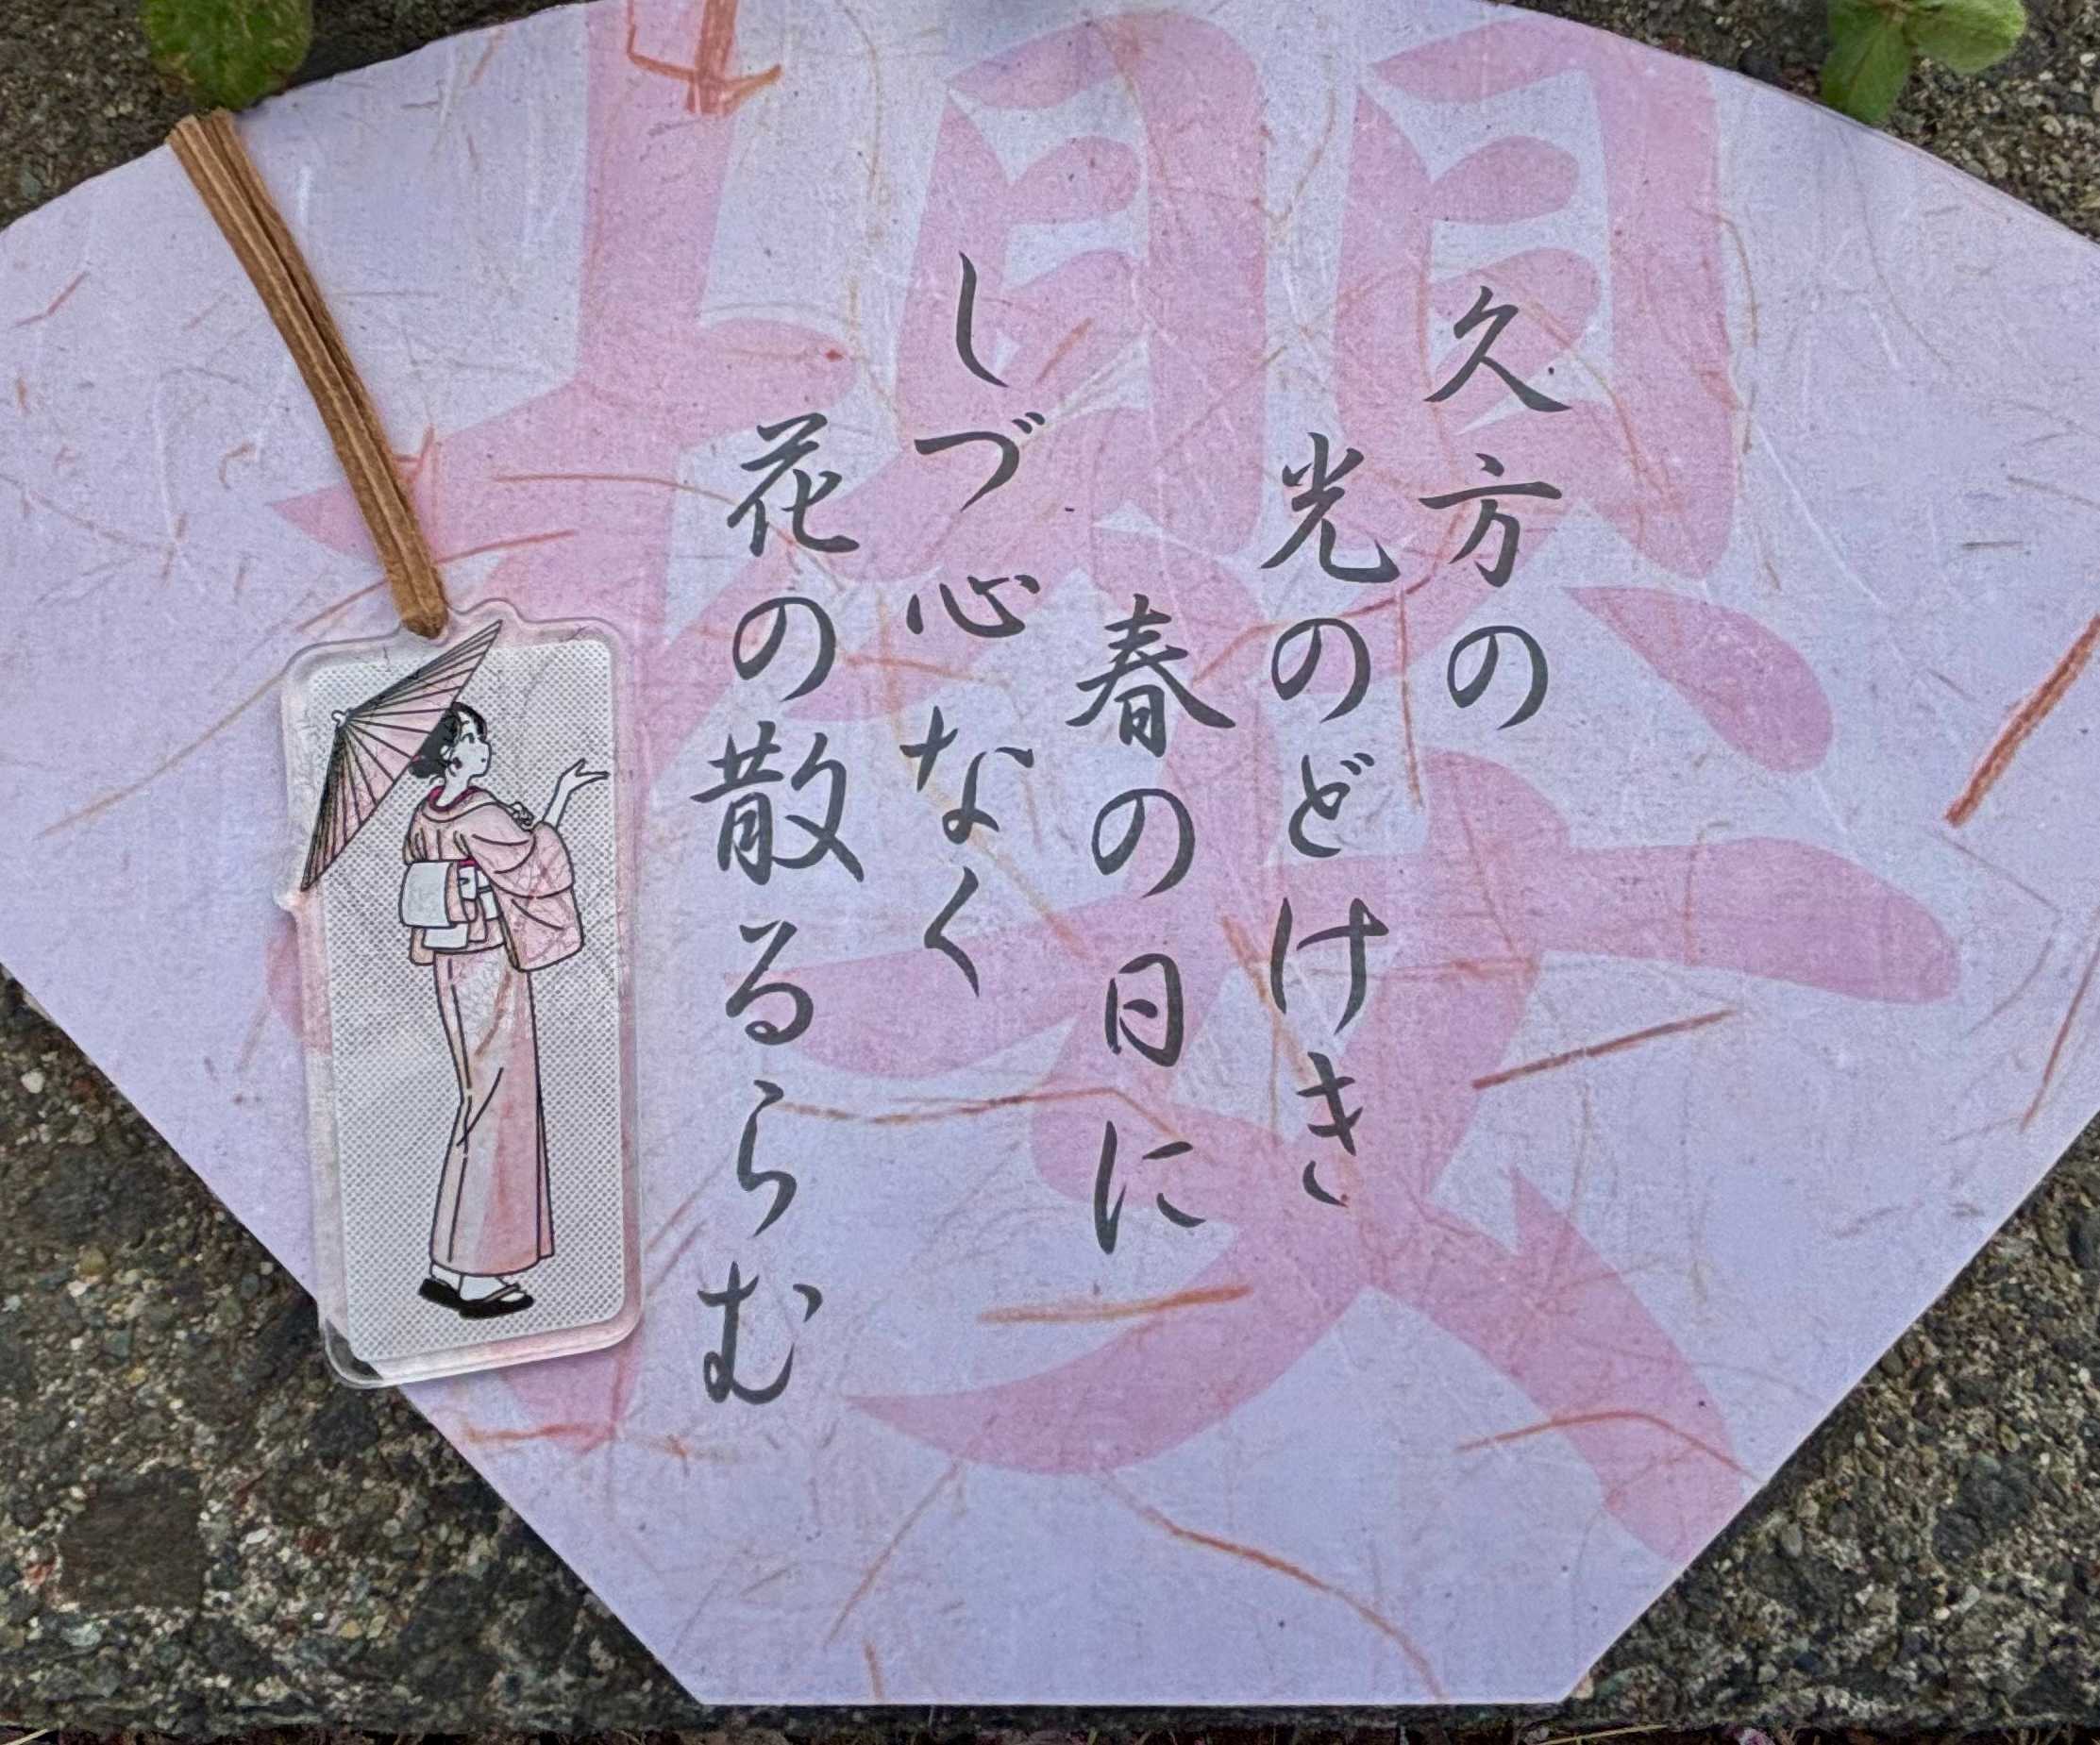 櫻
久方の
光のどけき
春の日に
しづ心なく
花の散るらむ